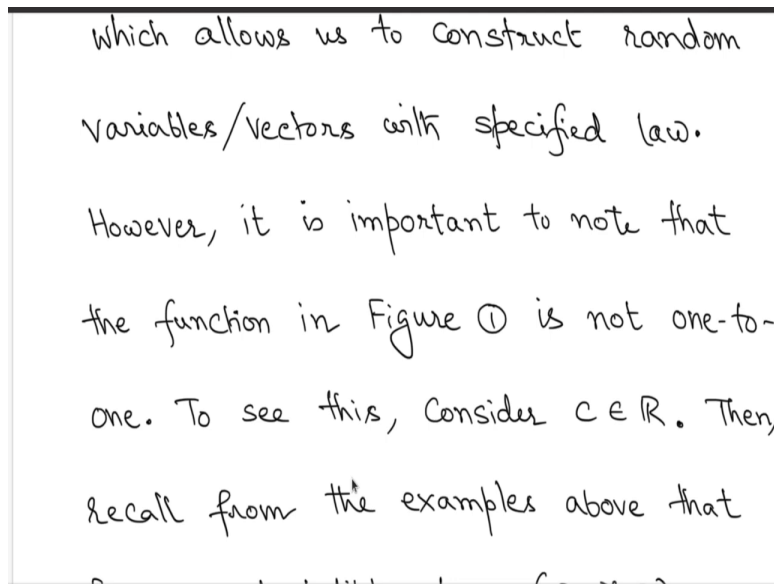 which allows us to construct random
variables/vectors with specified law.
However, it is important to note that
the function in Figure ① is not one-to-
one. To see this, Consider C ∈ ℝ. Then,
recall from the examples above that